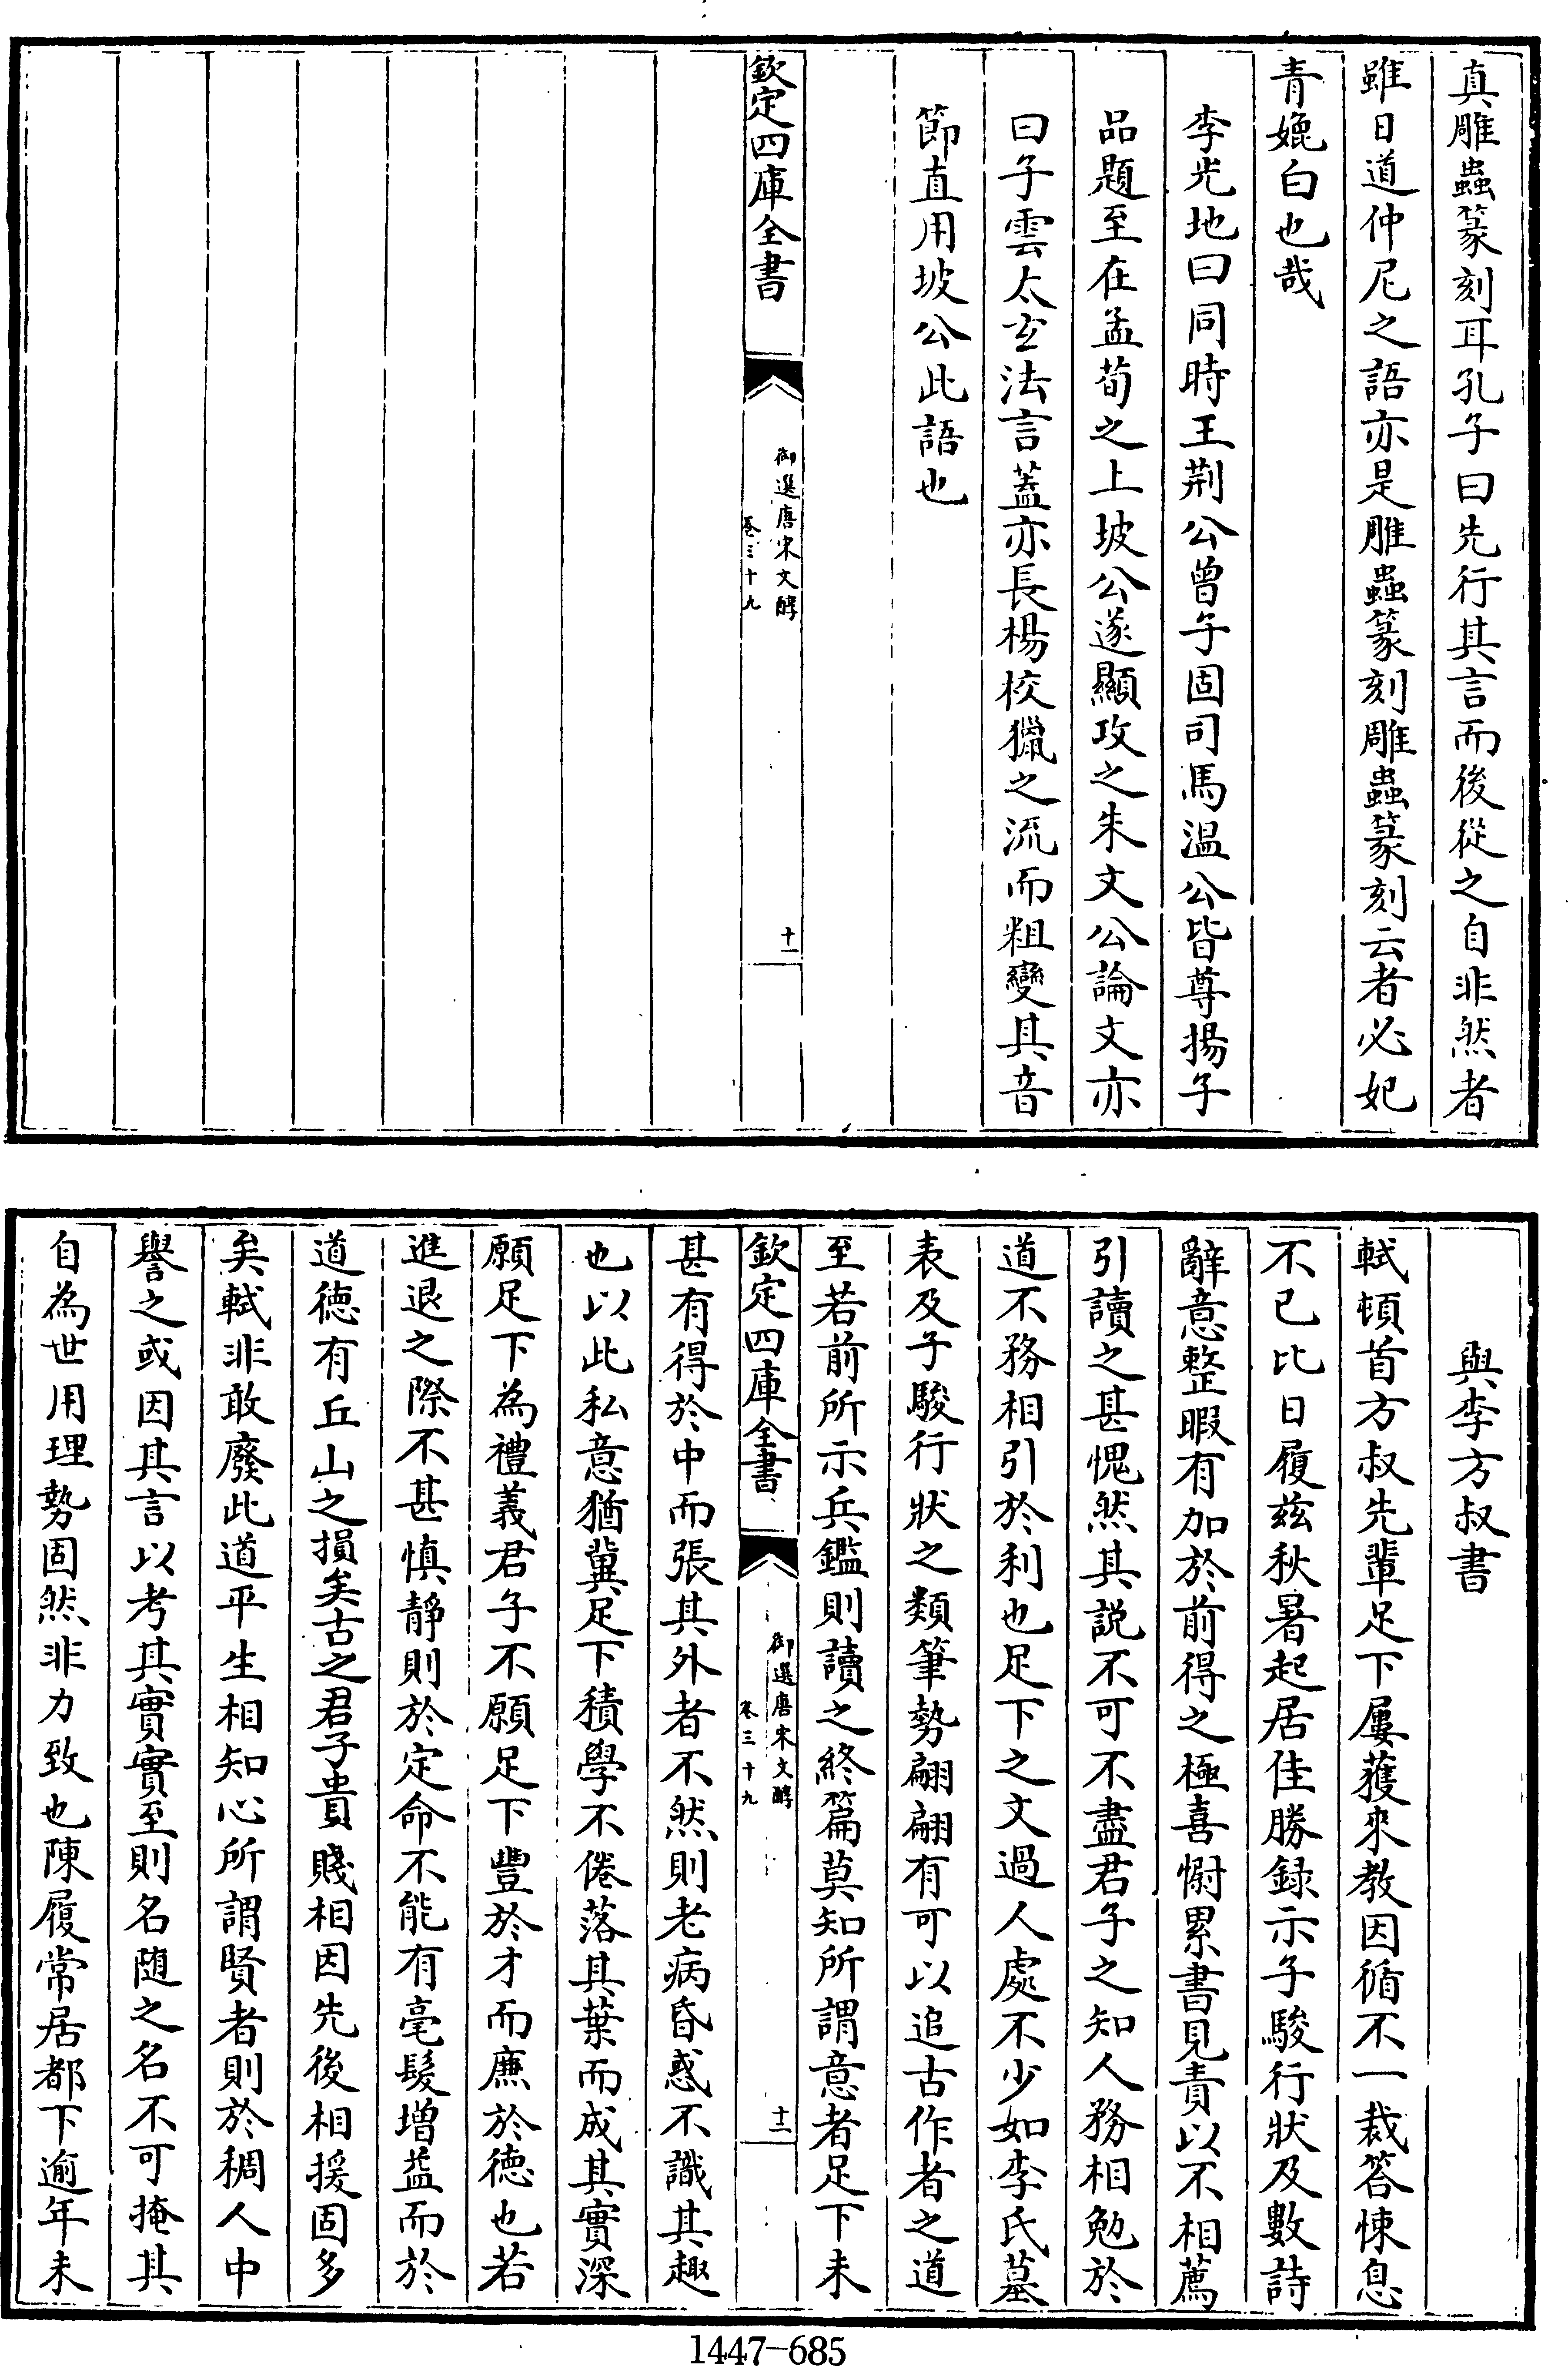 真雕蟲篆刻耳孔子曰先行其言而後從之自非然者
雖日道仲尼之語亦是雕蟲篆刻雕蟲篆刻云者必妃
青媲白也哉
李光地曰同時王荆公曾子固司馬温公皆尊揚子
品題至在孟荀之上坡公遂顯攻之朱文公論文亦
曰子雲太𤣥法言蓋亦長楊校獵之流而粗變其音
節直用坡公此語也
欽定四庫全書
御選唐宋文醇
卷三十九
十一
與李方叔書
軾頓首方叔先輩足下屢獲來教因循不一裁答悚息
不已比日履兹秋暑起居佳勝録示子駿行狀及數詩
辭意整暇有加於前得之極喜慰累書見責以不相薦
引讀之甚愧然其説不可不盡君子之知人務相勉於
道不務相引於利也足下之文過人處不少如李氏墓
表及子駿行狀之類筆勢翩翩有可以追古作者之道
至若前所示兵鑑則讀之終篇莫知所謂意者足下未
欽定四庫全書
御選唐宋文醇
卷三十九
十二
甚有得於中而張其外者不然則老病昏惑不識其趣
也以此私意猶冀足下積學不倦落其葉而成其實深
願足下為禮義君子不願足下豐於才而廉於徳也若
進退之際不甚慎靜則於定命不能有毫髮增益而於
道徳有丘山之損矣古之君子貴賤相因先後相援固多
矣軾非敢廢此道平生相知心所謂賢者則於稠人中
譽之或因其言以考其實實至則名隨之名不可掩其
自為世用理勢固然非力致也陳履常居都下逾年未
1447-685